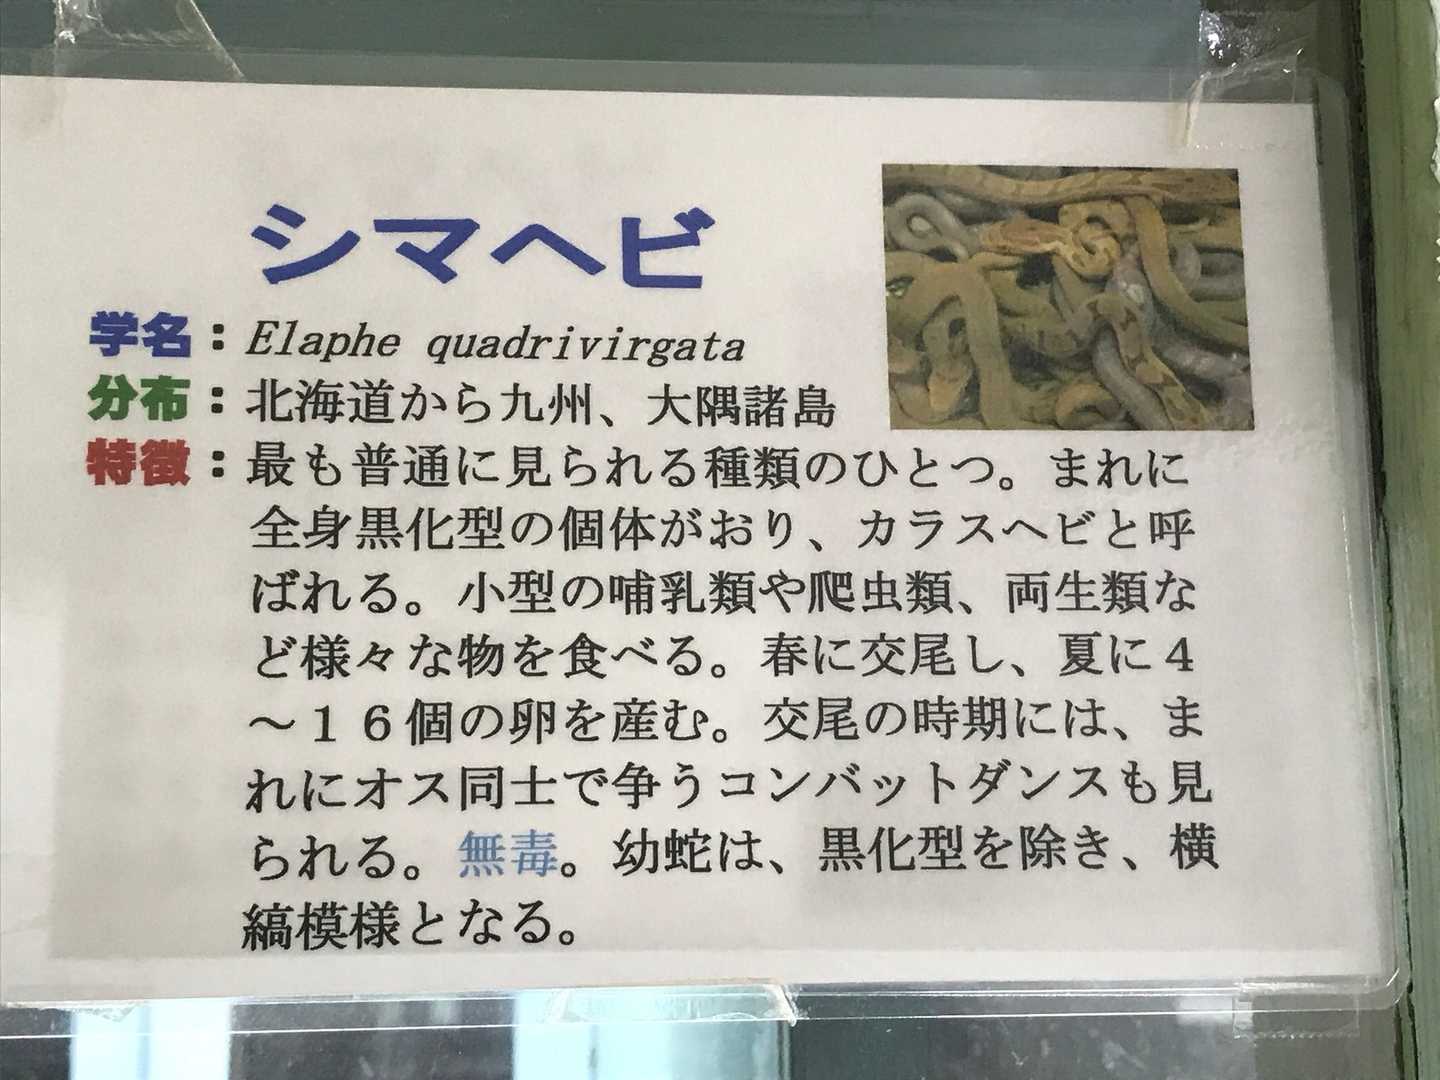 シマヘビ
学名：Elaphe quadrivirgata
分布：北海道から九州、大隅諸島
特徴：最も普通に見られる種類のひとつ。まれに
全身黒化型の個体がおり、カラスヘビと呼
ばれる。小型の哺乳類や爬虫類、両生類な
ど様々な物を食べる。春に交尾し、夏に４
～１６個の卵を産む。交尾の時期には、ま
れにオス同士で争うコンバットダンスも見
られる。無毒。幼蛇は、黒化型を除き、横
縞模様となる。